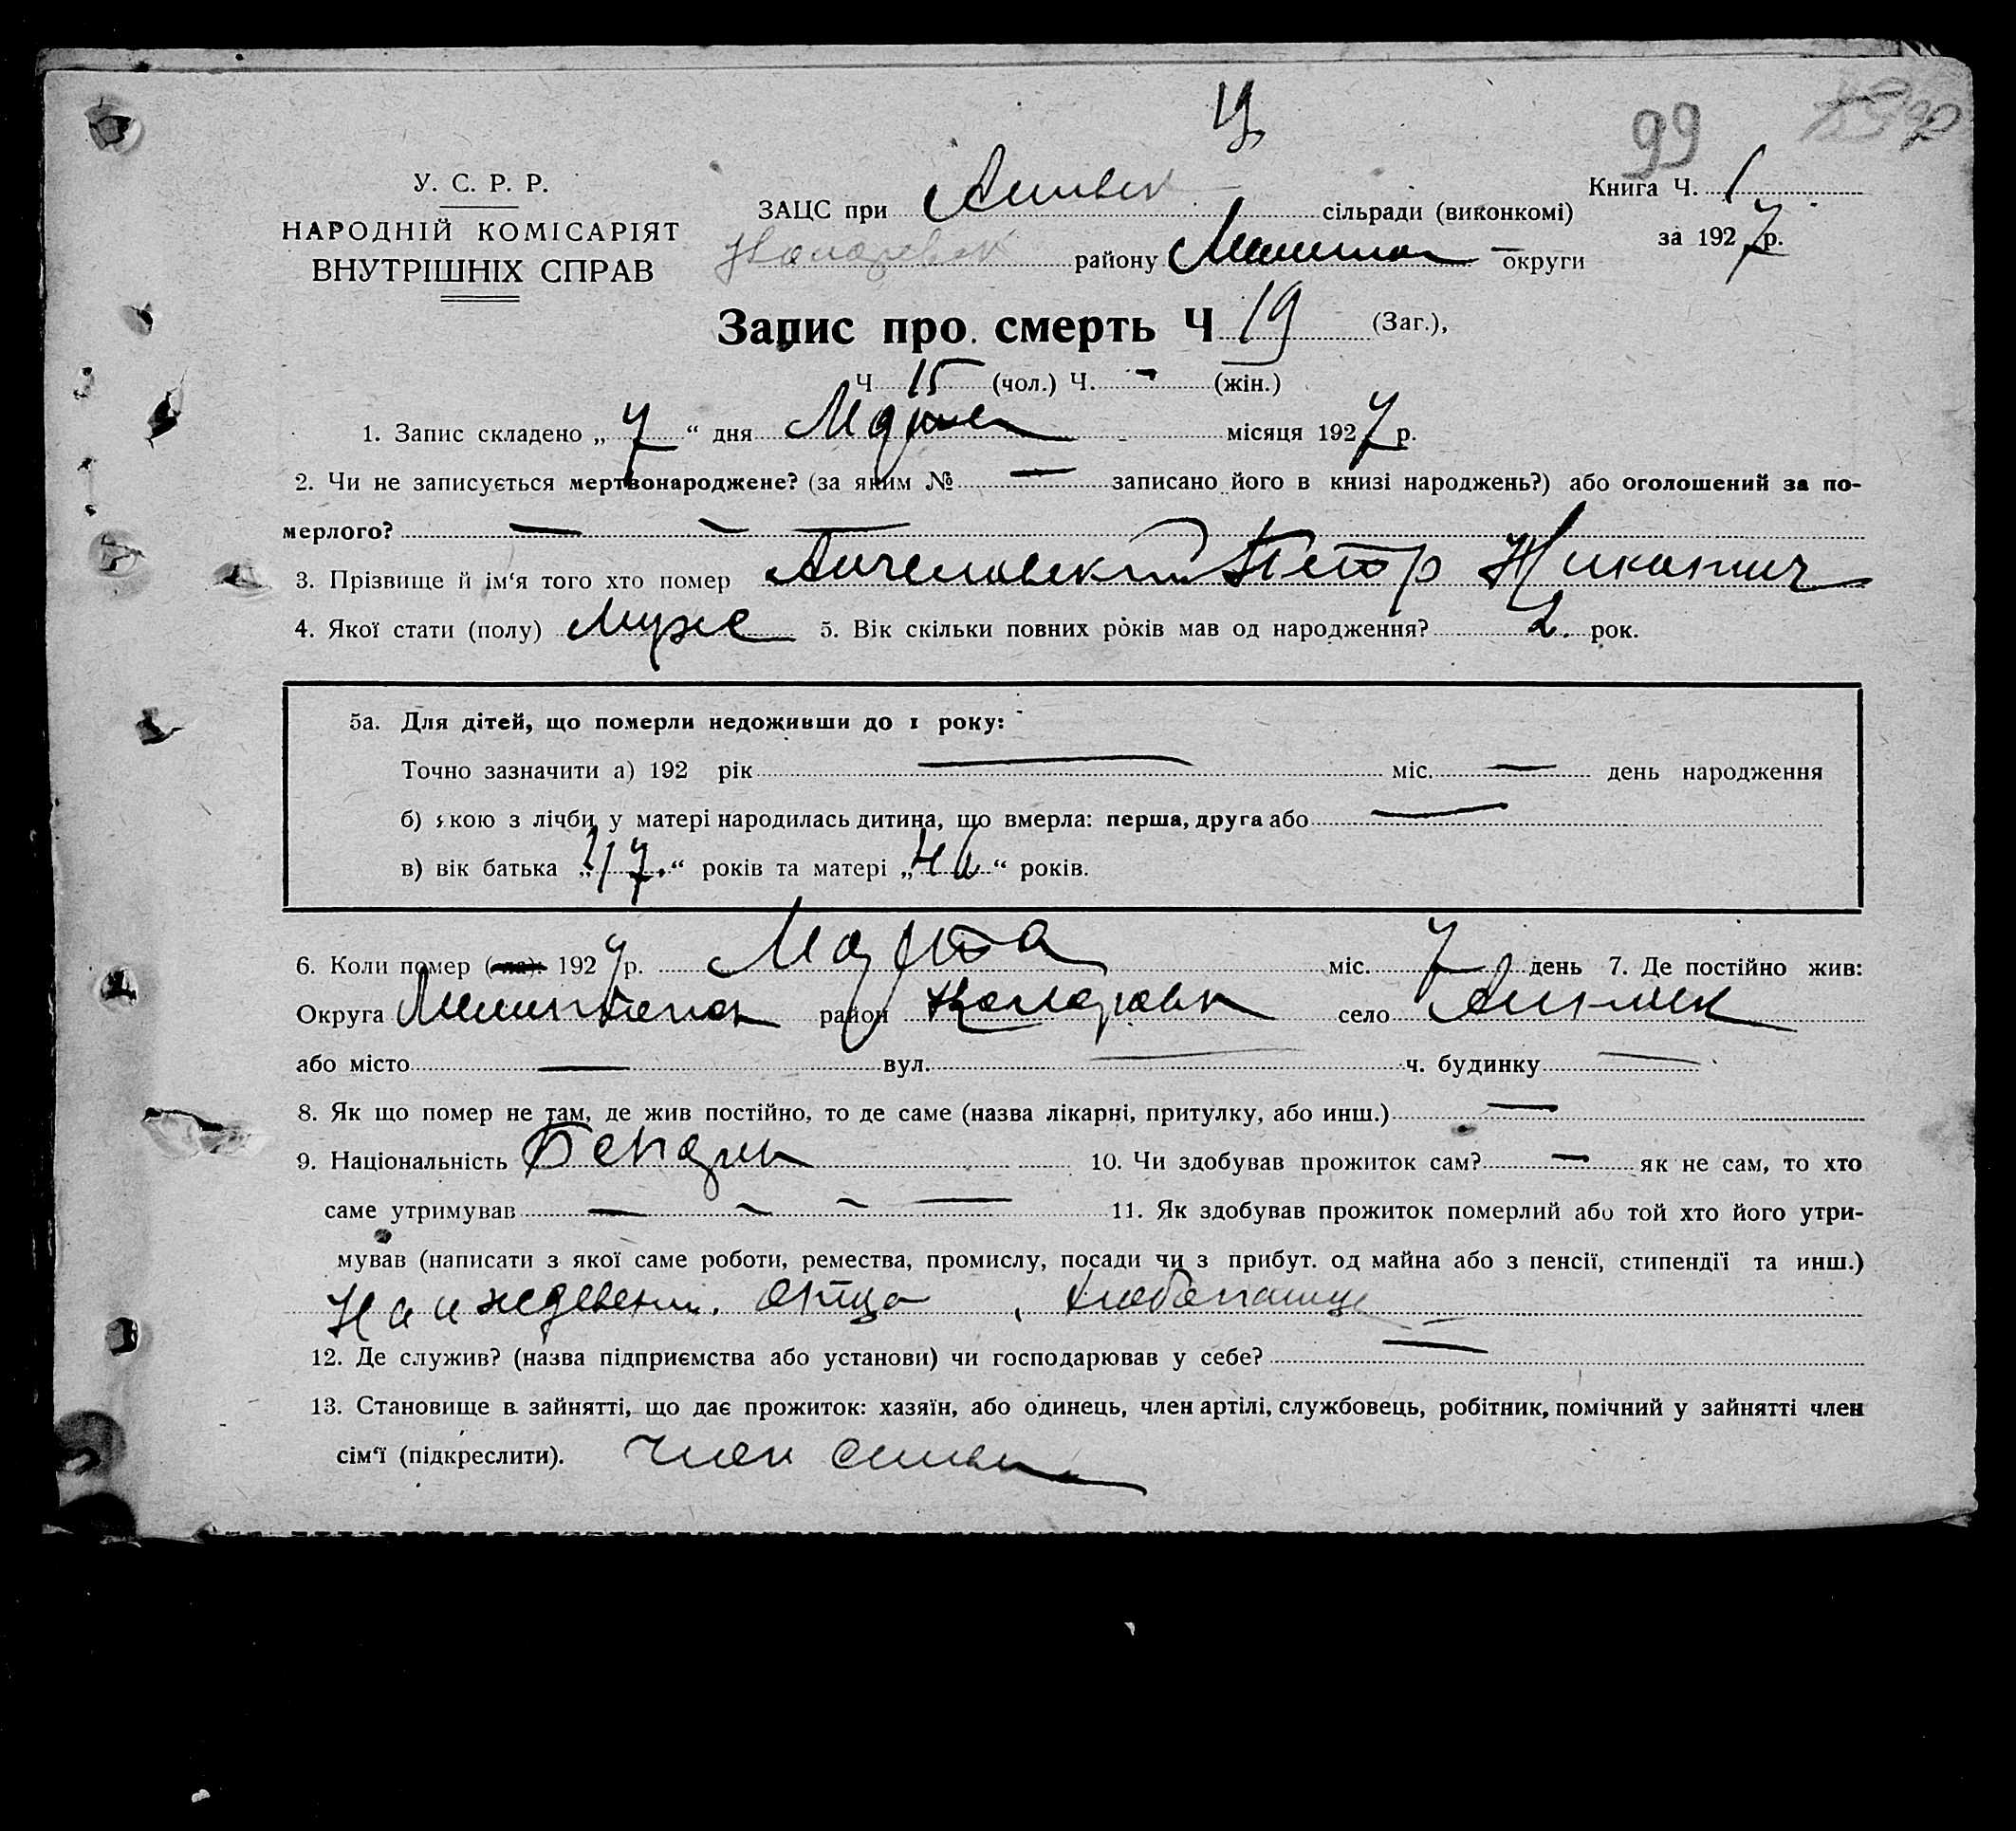 99
У. С. Р. Р.
НАРОДНІЙ КОМІСАРІЯТ
ВНУТРІШНІХ СПРАВ
Книга Ч. 1
за 1927 р.
ЗАЦС при сільради (виконкомі)
району округи
Запис про смерть Ч 19 (Заг.),
Ч 15 (чол.) Ч. - (жін.)
1. Запис складено „ 7 “ дня Марта місяця 1927 р.
2. Чи не записується мертвонароджене? (за яким № — записано його в книзі народжень?) або оголошений за по-
мерлого? — —
3. Прізвище й ім‘я того хто помер Петр
4. Якої стати (полу) Муже 5. Вік скільки повних років мав од народження? 2. рок.
5а. Для дітей, що померли недоживши до 1 року:
Точно зазначити а) 192 рік — міс. — день народження
б) якою з лічби у матері народилась дитина, що вмерла: перша, друга або —
в) вік батька „ “ років та матері „ “ років.
6. Коли помер 1927 р. Марта міс. 7 день 7. Де постійно жив:
Округа район село
або місто — вул. — ч. будинку —
8. Як що помер не там, де жив постійно, то де саме (назва лікарні, притулку, або инш.) —
9. Національність 10. Чи здобував прожиток сам? — як не сам, то хто
саме утримував — — — —
11. Як здобував прожиток померлий або той хто його утри-
мував (написати з якої саме роботи, ремества, промислу, посади чи з прибут. од майна або з пенсії, стипендії та инш.)
На иждевени. отца,
12. Де служив? (назва підприємства або установи) чи господарював у себе? —
13. Становище в зайнятті, що дає прожиток: хазяїн, або одинець, член артілі, службовець, робітник, помічний у зайнятті член
сім‘ї (підкреслити). член семьи